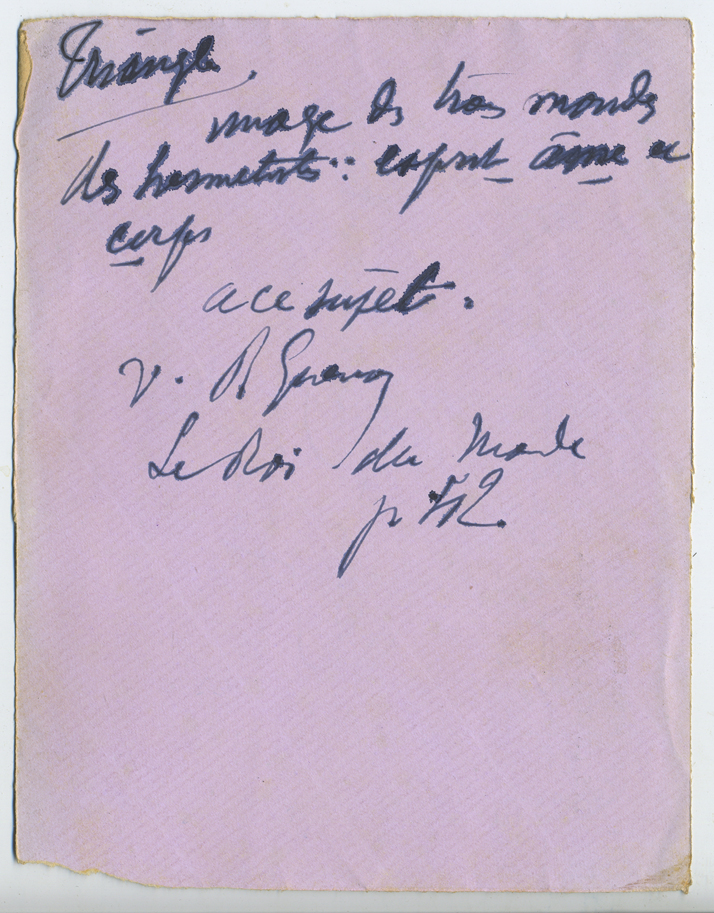 Triangle.
image des trois mondes
des hermetistes : esprit âme et
corps
a ce sujet.
v. R Guenon
Le Roi du Monde
p 52